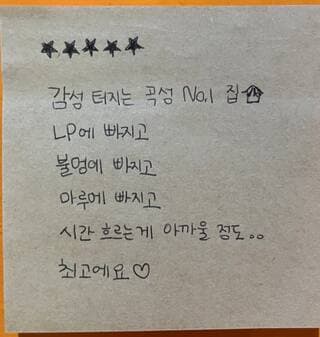 ★★★★★
감성 터지는 곡성 No.1 집🏠
LP에 빠지고
불멍에 빠지고
마루에 빠지고
시간 흐르는게 아까울 정도..
최고에요♡